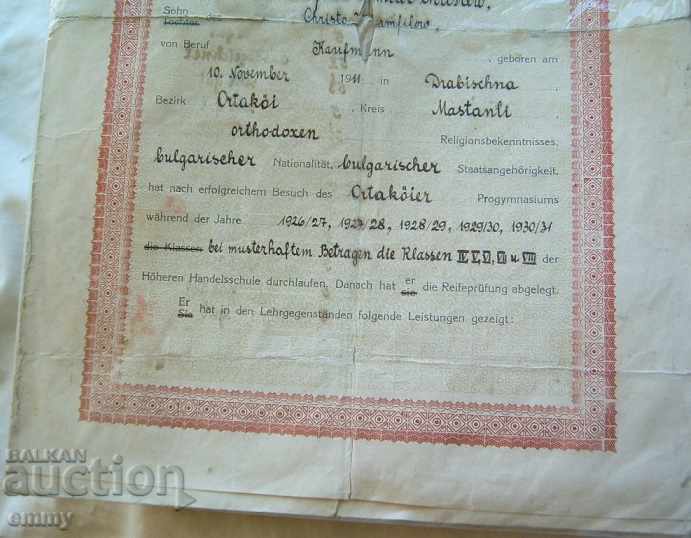 Sohn
Tochter Christo
von Beruf Kaufmann, geboren am
10. November 1911 in Drabischna
Bezirk Ortaköi, Kreis Mastanli
orthodoxen Religionsbekenntnisses,
bulgarischer Nationalität, bulgarischer Staatsangehörigkeit,
hat nach erfolgreichem Besuch des Ortaköier Progymnasiums
während der Jahre 1926/27, 1927/28, 1928/29, 1929/30, 1930/31
die Klassen bei musterhaftem Betragen die Klassen VI, VII u VIII der
Höheren Handelsschule durchlaufen. Danach hat er Sie die Reifeprüfung abgelegt.
Er Sie hat in den Lehrgegenständen folgende Leistungen gezeigt:
BALKAN
auction
emmy